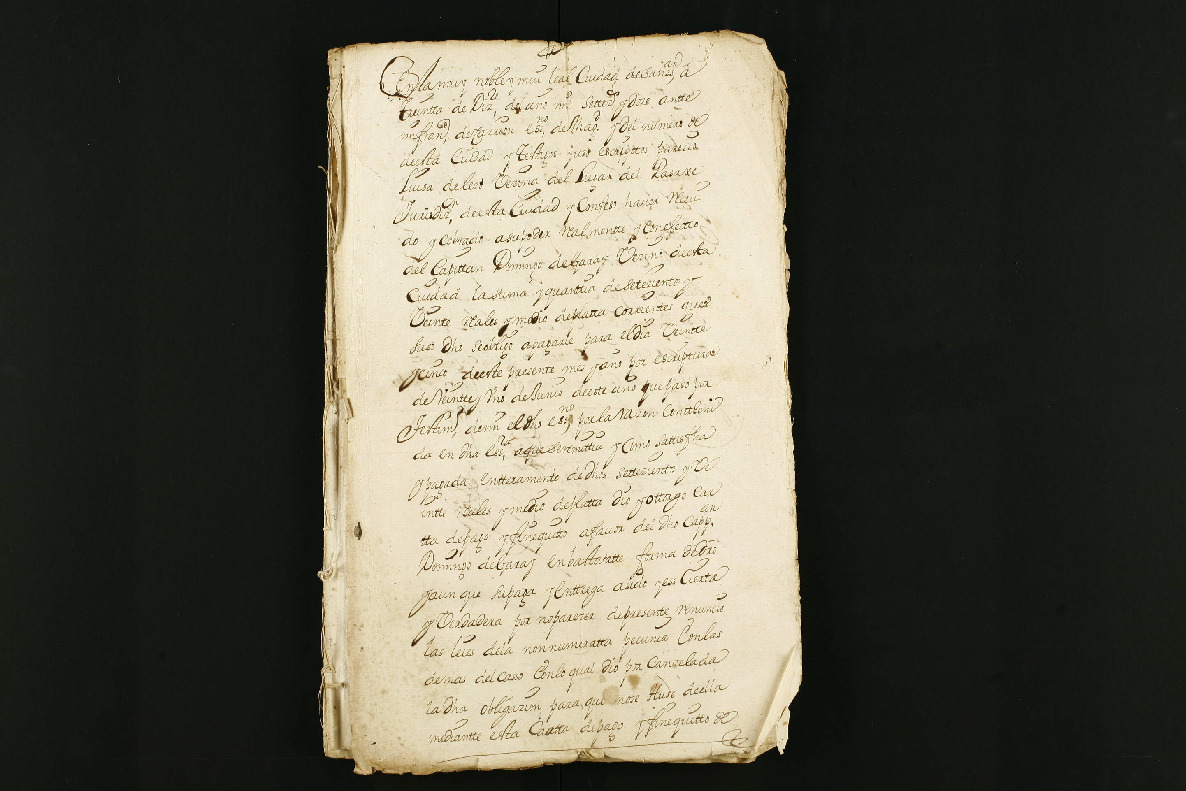 En la muy noble y mui leal Ciudad de San Sn, a
treintta de Diz.re del año mil settes y doze antte
mi Fran.co de Gaizan ess.no de su Mag.d y del numero de
de esta Ciudad y Testigos yuso escripttos parecio
Luisa de Vezina del Lugar del Pasaxe
Jurisdiz.on de esta Ciudad y Confeso haver Reçiui
do y cobrado a su poder Realmentte y con efectto
del Capittan Domingo de Garay Vezino de esta
Ciudad la suma y quanttia de setezientos y
Veinte Reales y medio de platta corrientes que el
suso dho se obligo a pagarle para el dia Veintte
y cinco de este presente mes y año por escripttura
de Veintte y Uno de Junio de este año que paso por
Testim.o de mi el dho ess.no por la Razon Conttheni
da en dha ess.ra a que se remitte y como sattisfha
y pagada entteramente de dhos settezientos y Ve
intte Reales y medio de platta dio y ottorgo Car
tta de pago y finiquitto a favor del dho Capp.an
Domingo de Garay en basttantte forma de dro
y aunque la paga y Enttrega a sido y es Cierta
y Verdadera por no parezer de presente renuncio
las leies de la non numeratta pecunia Con las
demas del caso Con lo qual dio por Canzelada
la dha obligazion para que no se Use de ella
mediantte esta Cartta de pago y finiquitto de